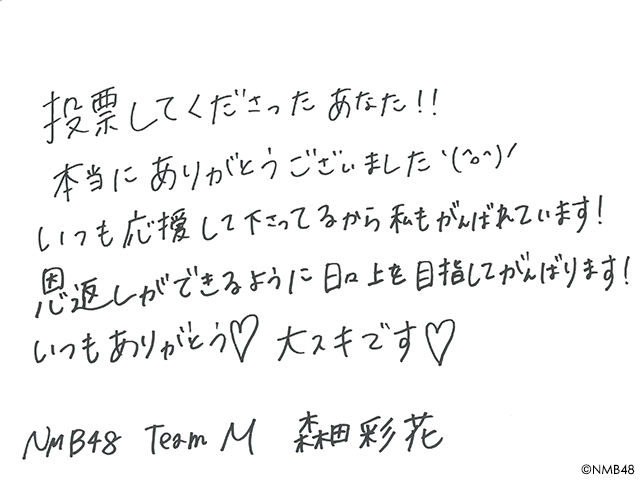 投票してくださったあなた!!
本当にありがとうございました\(^o^)/
いつも応援して下さってるから私もがんばれています!
恩返しができるように日々上を目指してがんばります!
いつもありがとう♡ 大スキです♡
NMB48 Team M 森田彩花
©NMB48